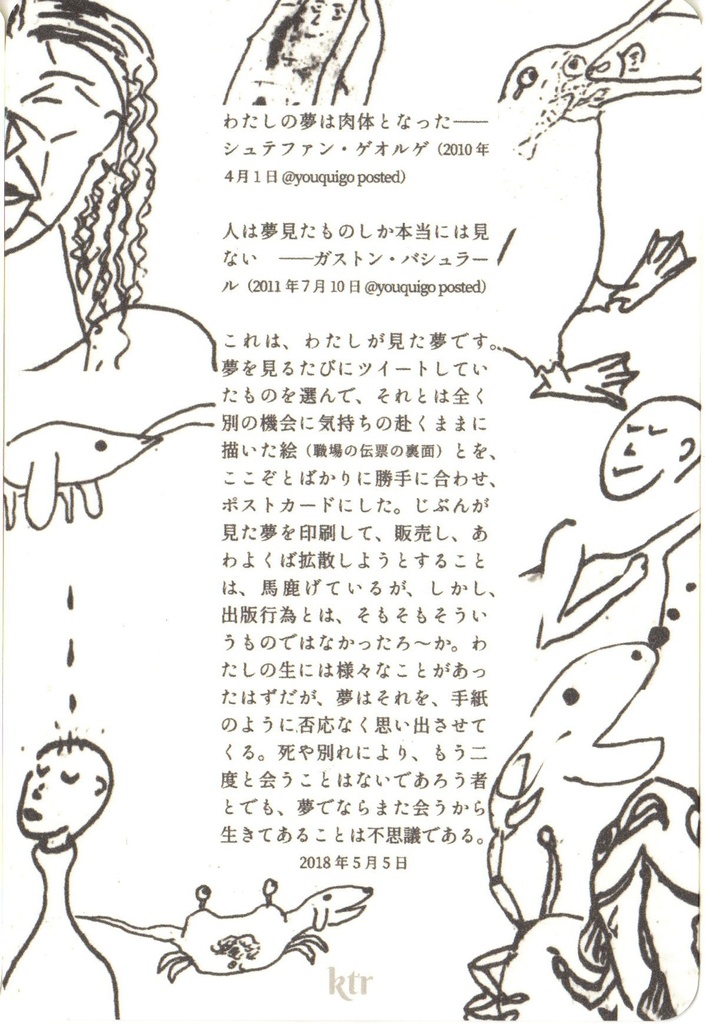 わたしの夢は肉体となった——
シュテファン・ゲオルゲ（2010 年
4月1日 @youquigo posted）
人は夢見たものしか本当には見
ない　——ガストン・バシュラー
ル（2011 年 7月 10日 @youquigo posted）
これは、わたしが見た夢です。
夢を見るたびにツイートしてい
たものを選んで、それとは全く
別の機会に気持ちの赴くままに
描いた絵（職場の伝票の裏面）とを、
ここぞとばかりに勝手に合わせ、
ポストカードにした。じぶんが
見た夢を印刷して、販売し、あ
わよくば拡散しようとすること
は、馬鹿げているが、しかし、
出版行為とは、そもそもそうい
うものではなかったろ〜か。わ
たしの生には様々なことがあっ
たはずだが、夢はそれを、手紙
のように否応なく思い出させて
くる。死や別れにより、もう二
度と会うことはないであろう者
とでも、夢でならまた会うから
生きてあることは不思議である。
2018 年 5月 5日
ktr